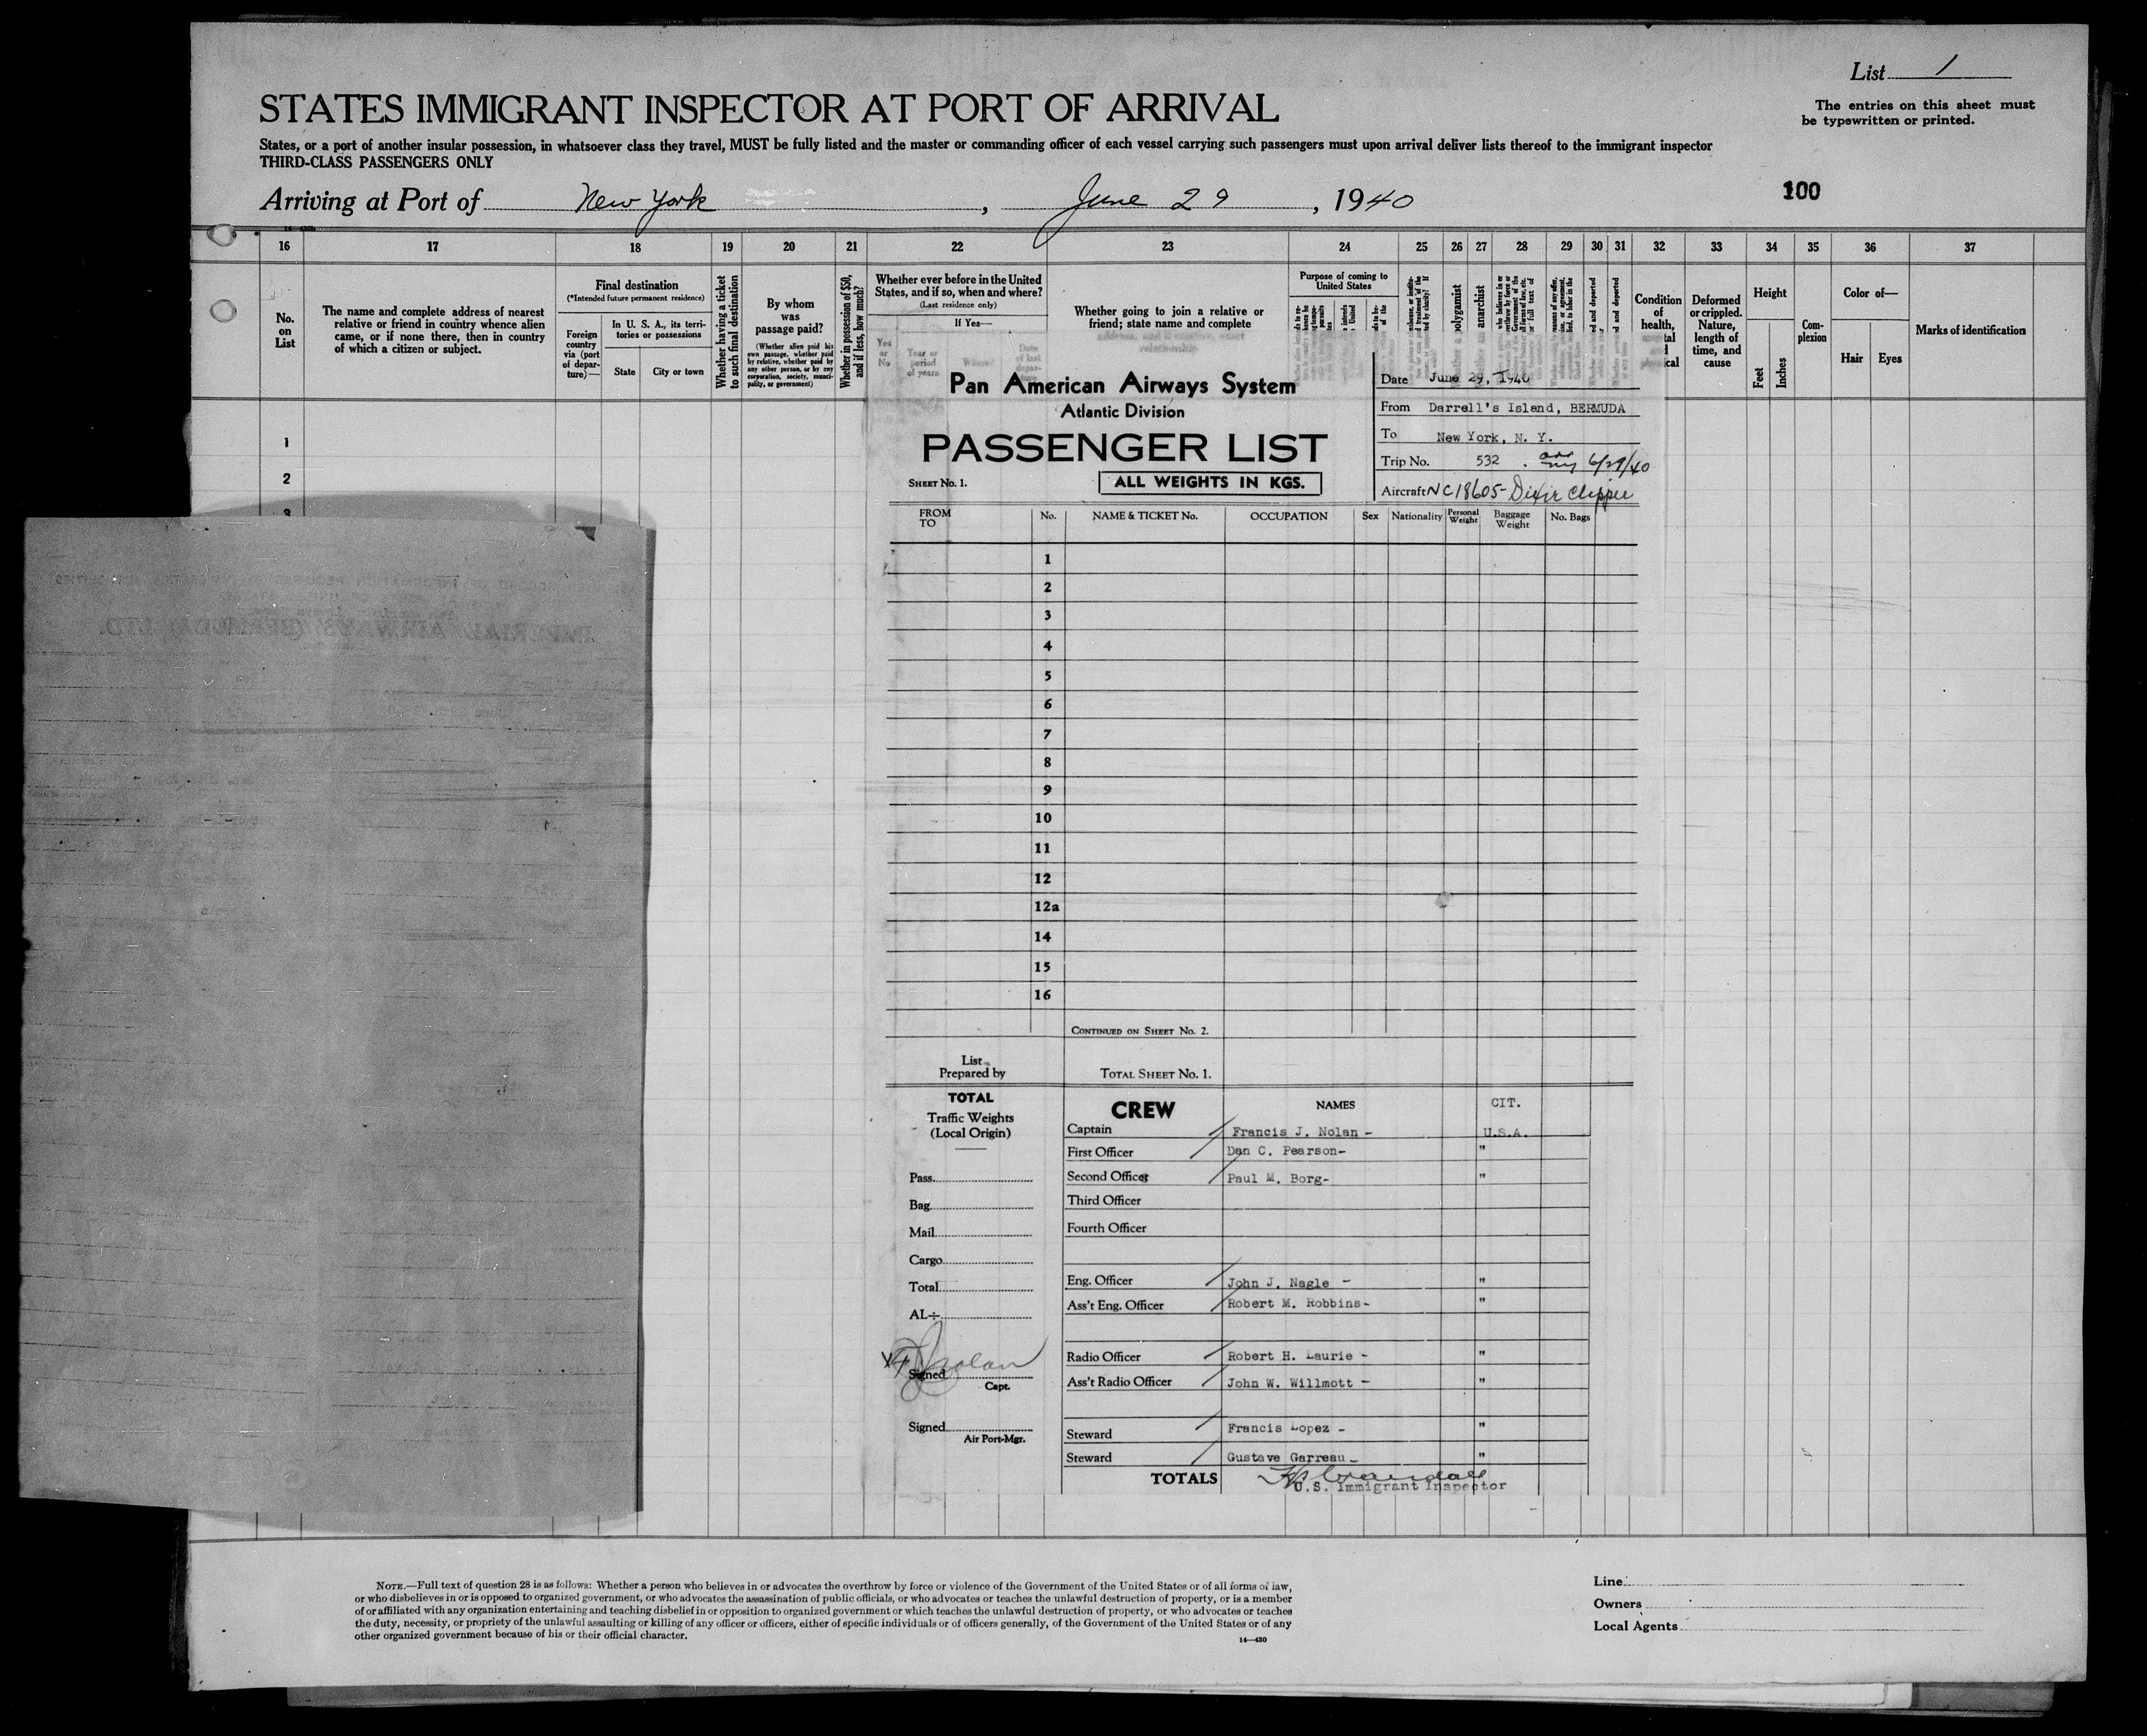 List 1
STATES IMMIGRANT INSPECTOR AT PORT OF ARRIVAL
The entries on this sheet must
be typewritten or printed.
States, or a port of another insular possession, in whatsoever class they travel, MUST be fully listed and the master or commanding officer of each vessel carrying such passengers must upon arrival deliver lists thereof to the immigrant inspector
THIRD-CLASS PASSENGERS ONLY
Arriving at Port of New York, June 29, 1940
100
16 17 18 19 20 21 22 23 24 25 26 27 28 29 30 31 32 33 34 35 36 37
No.
on
List
The name and complete address of nearest
relative or friend in country whence alien
came, or if none there, then in country
of which a citizen or subject.
Final destination
(*Intended future permanent residence)
Foreign
country
via (port
of depar-
ture)—
In U. S. A., its terri-
tories or possessions
State
City or town
Whether having a ticket
to such final destination
By whom
was
passage paid?
(Whether alien paid his
own passage, whether paid
by relative, whether paid by
any other person, or by any
corporation, society, munici-
pality, or government)
Whether in possession of $50,
and if less, how much?
Whether ever before in the United
States, and if so, when and where?
(Last residence only)
If Yes—
Yes
or
No
Year or
period
of years
Where?
Date
of last
depar-
ture
Whether going to join a relative or
friend; state name and complete
address, and if relative, exact
relationship
Purpose of coming to
United States
polygamist
anarchist
Condition
of
health,
Deformed
or crippled.
Nature,
length of
time, and
cause
Height
Feet
Inches
Com-
plexion
Color of—
Hair
Eyes
Marks of identification
1
2
3
Pan American Airways System
Atlantic Division
PASSENGER LIST
SHEET No. 1.
ALL WEIGHTS IN KGS.
Date June 29, 1940
From Darrell's Island, BERMUDA
To New York, N. Y.
Trip No. 532 . arr ny 6/29/40
Aircraft NC18605- Dixie Clipper
FROM
TO
No.
NAME & TICKET No.
OCCUPATION
Sex
Nationality
Personal
Weight
Baggage
Weight
No. Bags
1
2
3
4
5
6
7
8
9
10
11
12
12a
14
15
16
CONTINUED ON SHEET No. 2.
List
Prepared by
TOTAL SHEET No. 1.
TOTAL
Traffic Weights
(Local Origin)
Pass.
Bag.
Mail
Cargo
Total
AL÷
F J Nolan
Signed
Capt.
Signed
Air Port-Mgr.
CREW NAMES CIT.
Captain Francis J. Nolan - U.S.A.
First Officer Dan C. Pearson- "
Second Officer Paul M. Borg- "
Third Officer
Fourth Officer
Eng. Officer John J. Nagle - "
Ass't Eng. Officer Robert M. Robbins- "
Radio Officer Robert H. Laurie - "
Ass't Radio Officer John W. Willmott - "
Steward Francis Lopez - "
Steward Gustave Garreau - "
TOTALS
U.S. Immigrant Inspector
NOTE.—Full text of question 28 is as follows: Whether a person who believes in or advocates the overthrow by force or violence of the Government of the United States or of all forms of law,
or who disbelieves in or is opposed to organized government, or who advocates the assassination of public officials, or who advocates or teaches the unlawful destruction of property, or is a member
of or affiliated with any organization entertaining and teaching disbelief in or opposition to organized government or which teaches the unlawful destruction of property, or who advocates or teaches
the duty, necessity, or propriety of the unlawful assaulting or killing of any officer or officers, either of specific individuals or of officers generally, of the Government of the United States or of any
other organized government because of his or their official character.
14—430
Line
Owners
Local Agents